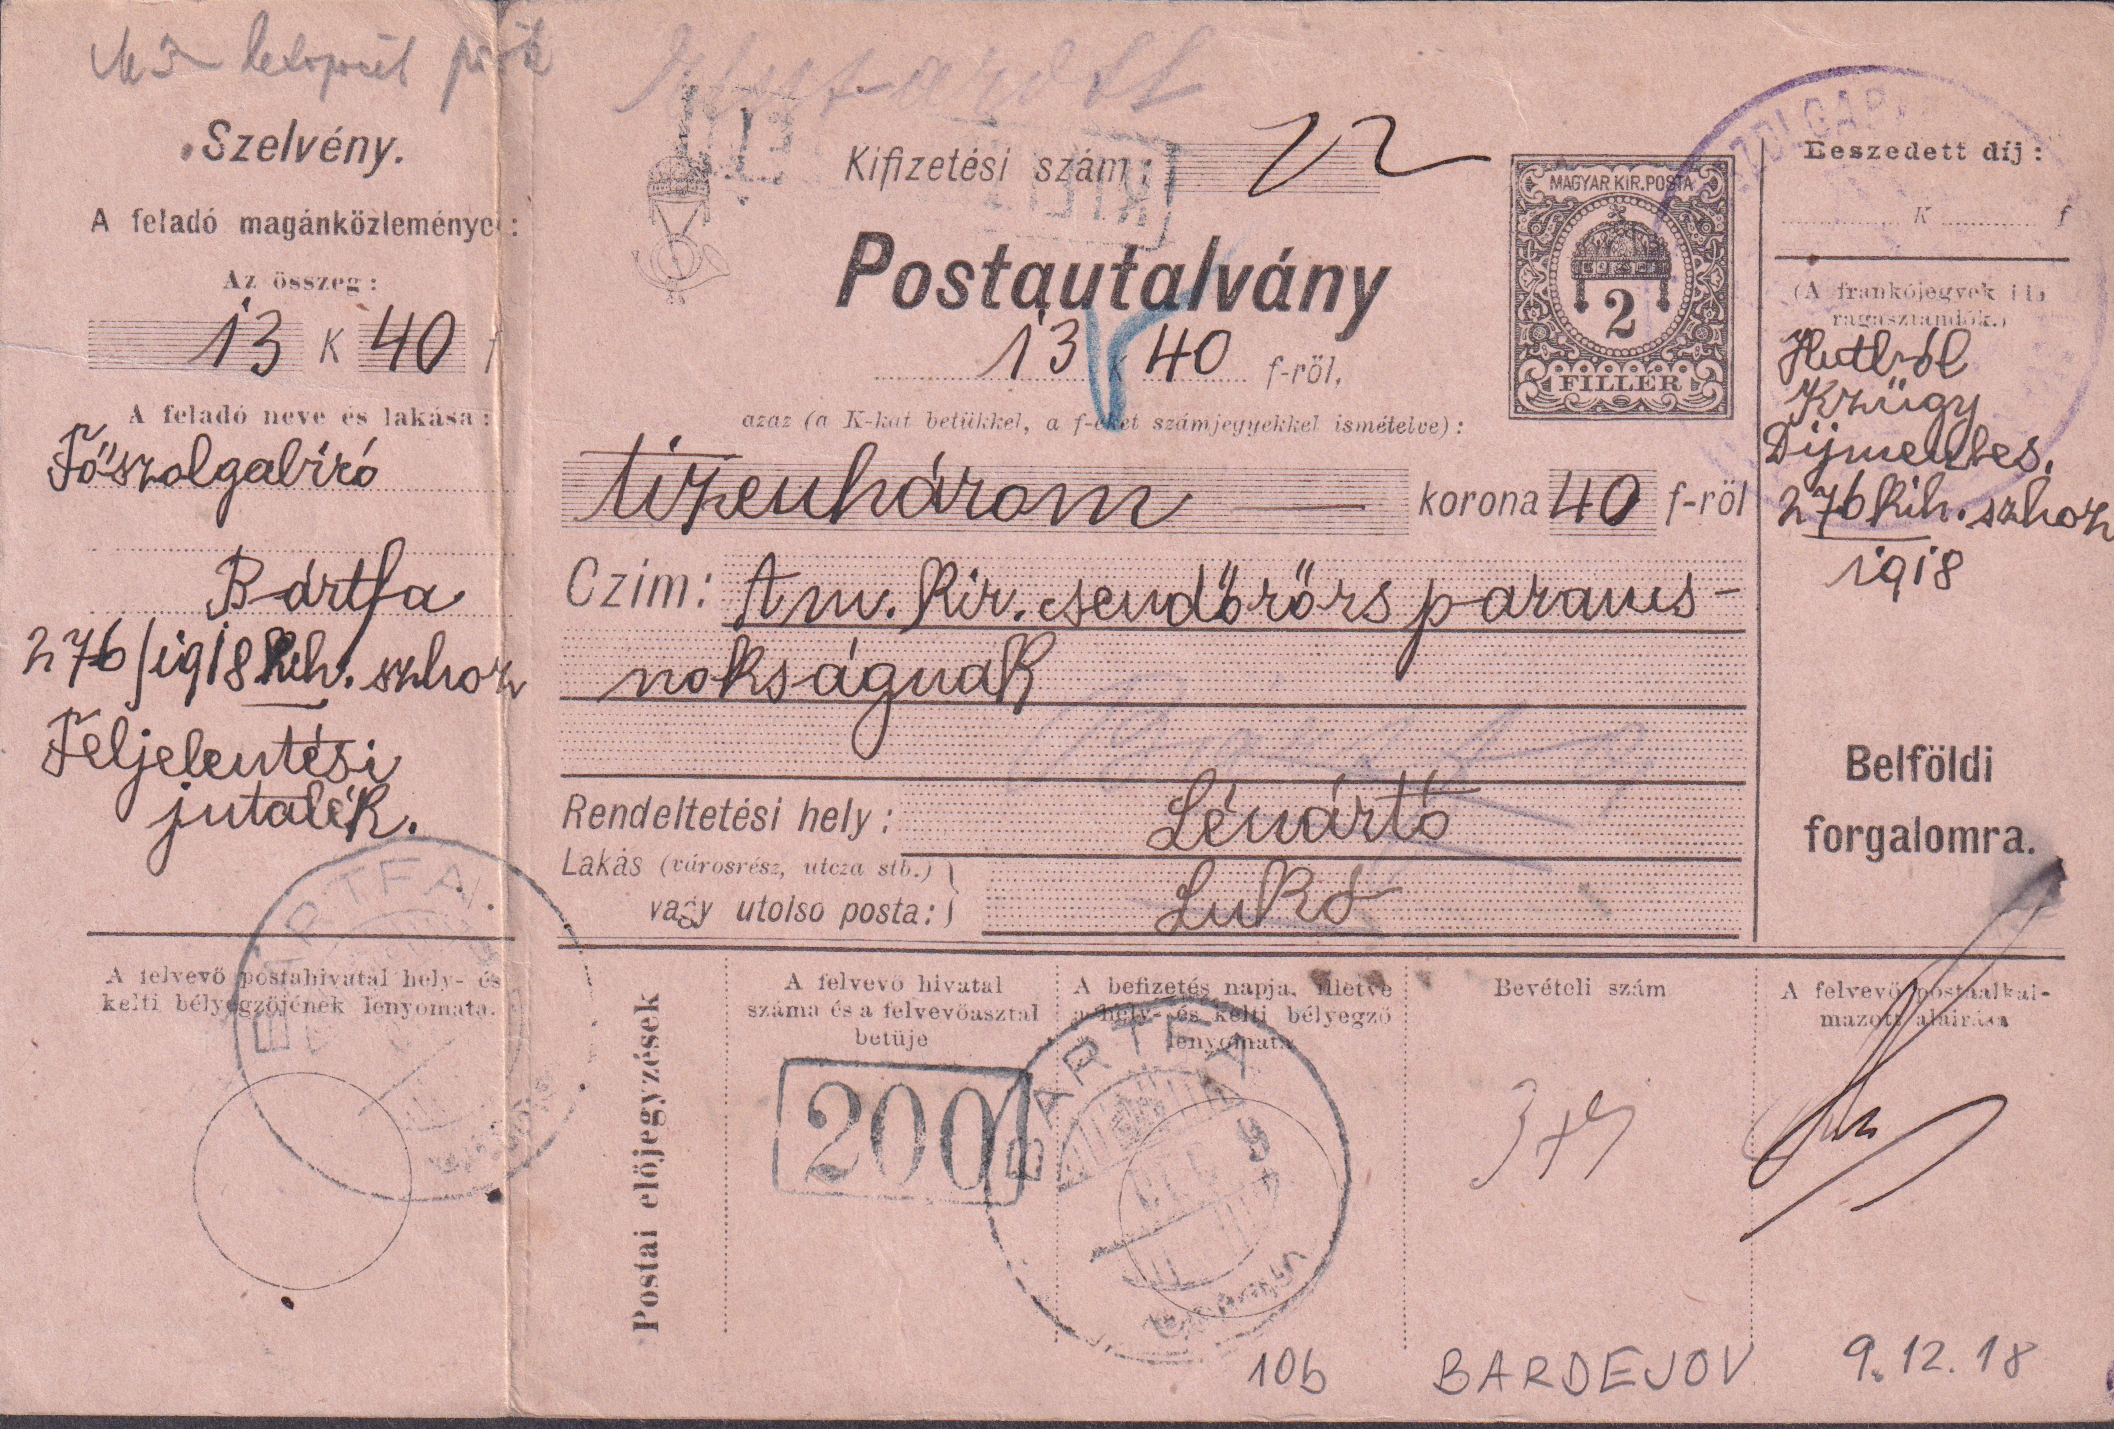 Szelvény.
A feladó magánközleménye:
Az összeg:
13 K 40 f
A feladó neve és lakása:
Főszolgabiró
Bártfa
276/1918 kih. szhoz
Feljelentési
jutalék.
BÁRTFA
A felvevő postahivatal hely- és
kelti bélyegzőjének lenyomata.
Kifizetési szám:
Postautalvány
13 K 40 f-ről,
azaz (a K-kat betükkel, a f-eket számjegyekkel ismételve):
tizenhárom — korona 40 f-ről
Czim: A m. kir. csendőrőrs parancs-
nokságnak
Rendeltetési hely: Lénártó
Lakás (városrész, utcza stb.)
vagy utolso posta: Lukó
MAGYAR KIR. POSTA
2
FILLÉR
Beszedett díj:
K f
(A frankójegyek ide
ragasztandók.)
Hutból
Közügy
Díjmentes.
276 kih. szhoz
1918
Belföldi
forgalomra.
Postai előjegyzések
A felvevő hivatal
száma és a felvevőasztal
betüje
200
A befizetés napja, illetve
a hely- és kelti bélyegző
lenyomata
BÁRTFA
DEC 9
Bevételi szám
A felvevő postaalkal-
mazott aláirása
10b BARDEJOV 9.12.18